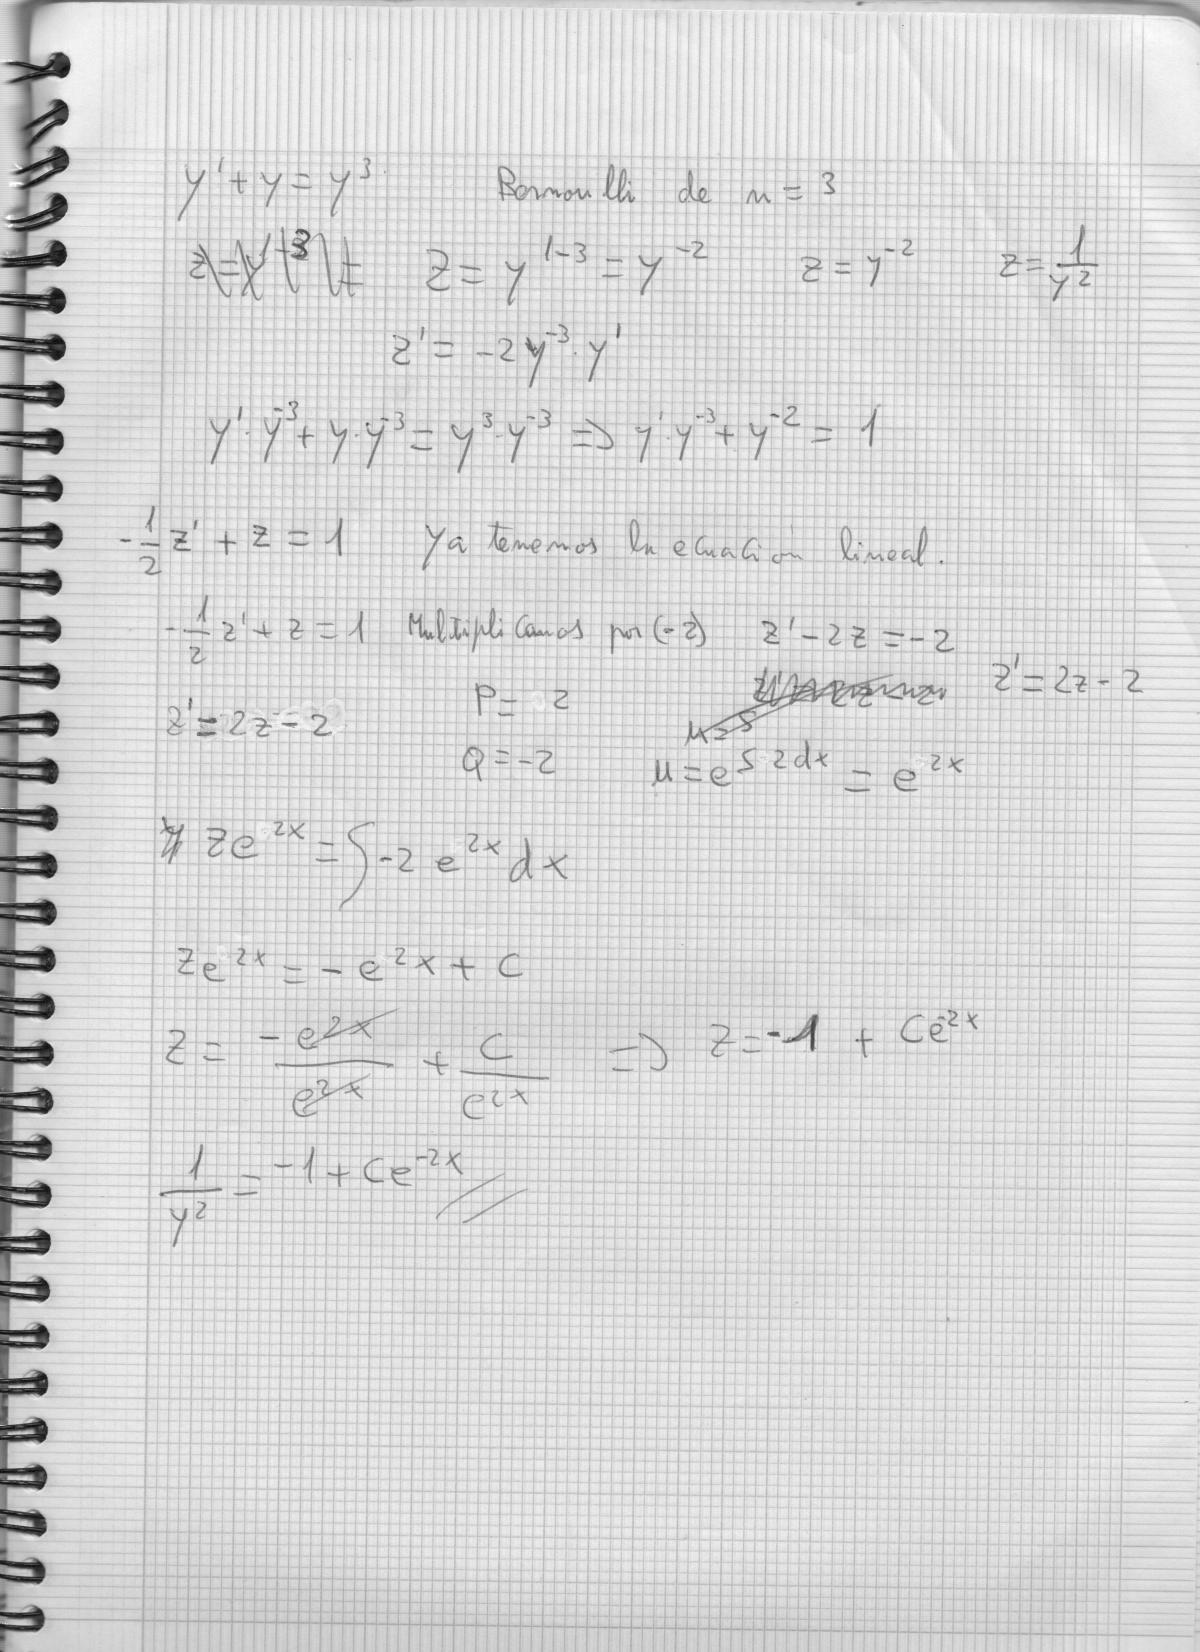 y' + y = y³ Bernoulli de n = 3
z = y^{1-3} = y^{-2} z = y^{-2} z = 1/y²
z' = -2y^{-3}·y'
y'·y^{-3} + y·y^{-3} = y³·y^{-3} => y'·y^{-3} + y^{-2} = 1
-1/2 z' + z = 1 Ya tenemos la ecuación lineal.
-1/2 z' + z = 1 Multiplicamos por (-2) z' - 2z = -2
z' = 2z - 2
z' = 2z - 2 P = 2
Q = -2 μ = e^{∫2dx} = e^{2x}
ze^{2x} = ∫-2 e^{2x} dx
ze^{2x} = -e^{2x} + C
z = -e^{2x}/e^{2x} + C/e^{2x} => z = -1 + Ce^{-2x}
1/y² = -1 + Ce^{-2x}